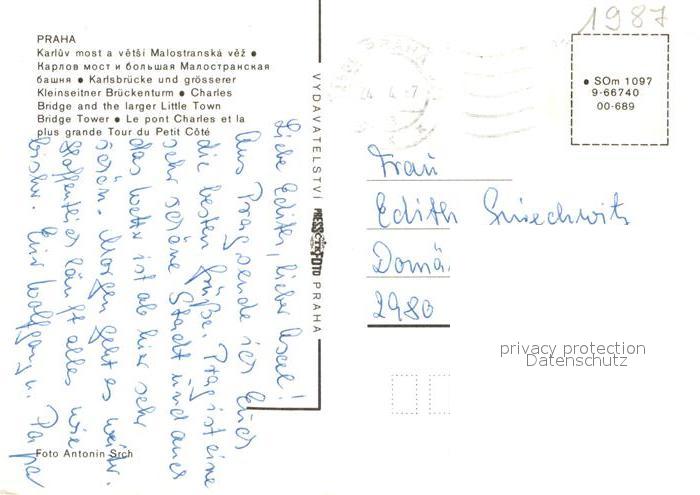 1987
PRAHA
Karlův most a větší Malostranská věž ●
Карлов мост и большая Малостранская
башня ● Karlsbrücke und grösserer
Kleinseitner Brückenturm ● Charles
Bridge and the larger Little Town
Bridge Tower ● Le pont Charles et la
plus grande Tour du Petit Côté
VYDAVATELSTVÍ PRESSFOTO PRAHA
● SOm 1097
9-66740
00-689
Liebe Edith, lieber Axel!
Aus Prag sende ich Euch
die besten Grüße. Prag ist eine
sehr schöne Stadt und auch
das Wetter ist ab hier sehr
schön. Morgen geht es weiter.
Hoffentlich läuft alles wie
bisher. Euer Wolfgang u. Papa
Frau
Edith
Domä
2980
privacy protection
Datenschutz
Foto Antonín Srch